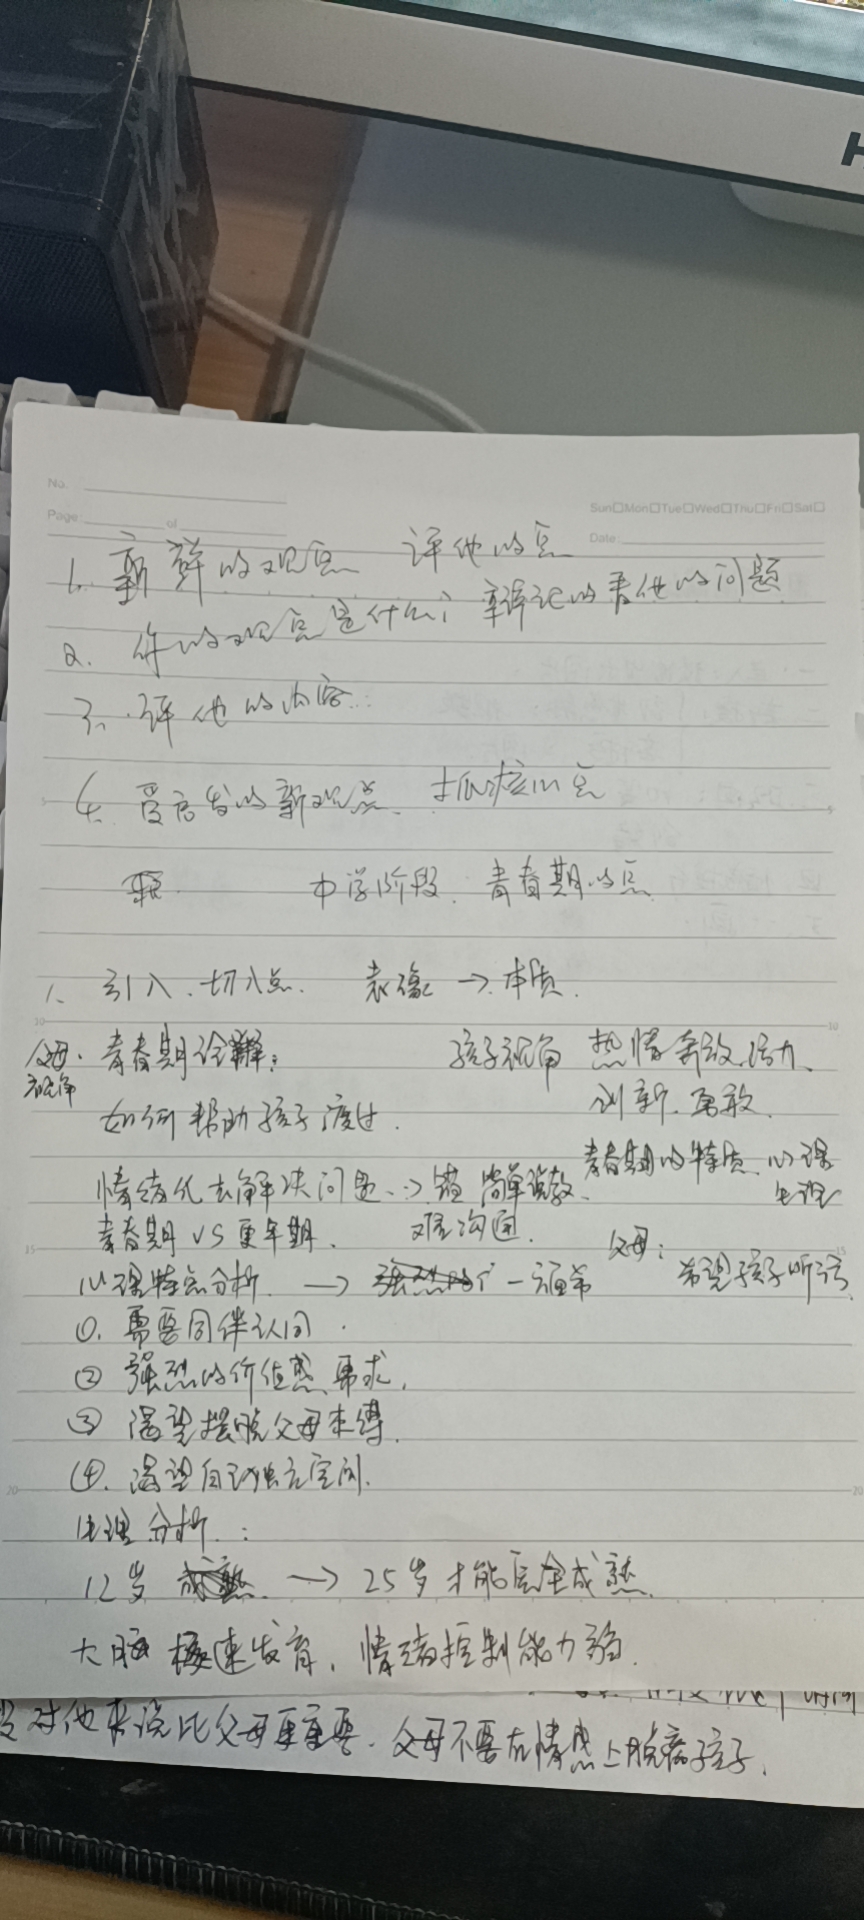 H
No.
Page: of
Sun□Mon□Tue□Wed□Thu□Fri□Sat□
Date:
1. 新鲜的观点 评他的点
2. 你的观点是什么? 辩证的看他的问题
3. 评他的内容
4. 受启发的新观点. 抓核心点
中学阶段. 青春期的点
1. 引入. 切入点. 表像 → 本质.
父母视角. 青春期诠释: 孩子视角 热情奔放.活力.
创新.勇敢.
如何帮助孩子渡过.
青春期的特质 心理
生理
情绪化去解决问题 → 错 简单说教.
青春期 VS 更年期. 难沟通. 父母:
希望孩子听话.
心理特点分析. →
①. 需要同伴认同.
② 强烈的价值感需求.
③ 渴望摆脱父母束缚.
④. 渴望自己独立空间.
生理分析:
12岁 → 25岁才能完全成熟.
大脑极速发育, 情绪控制能力弱.
对他来说比父母更重要. 父母不要在情感上脱离孩子.